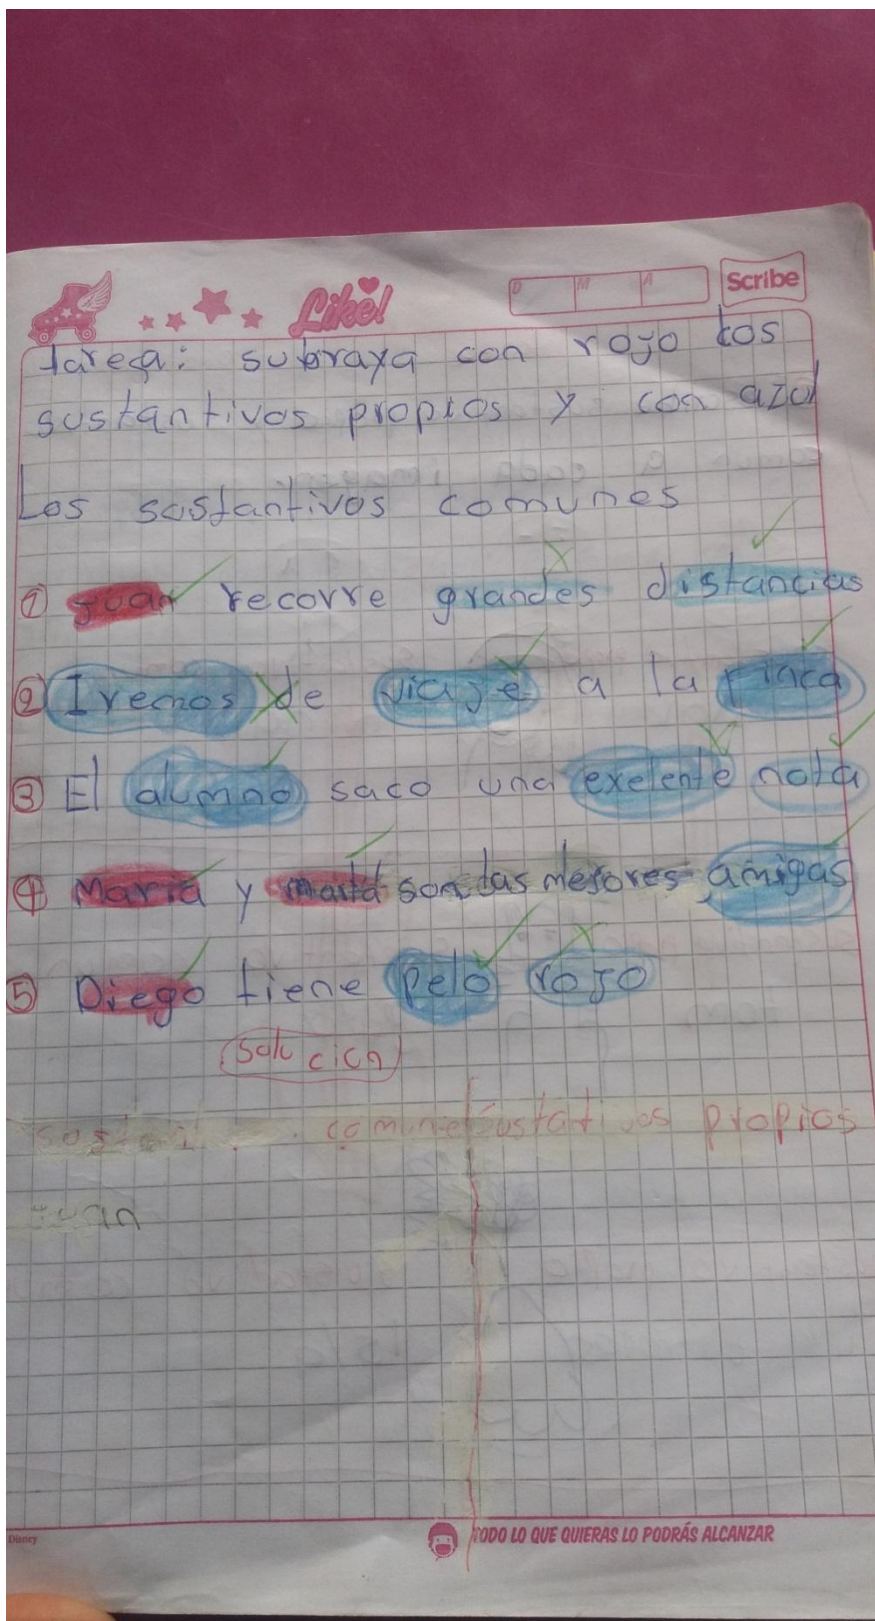 Like!
D M A
Scribe
tarea: subraya con rojo los
sustantivos propios y con azul
Los sustantivos comunes
① Juan recorre grandes distancias
② Iremos de viaje a la finca
③ El alumno saco una exelente nota
④ Maria y marta son las mejores amigas
⑤ Diego tiene pelo rojo
Solucion
comunes Sustativos propios
Juan
Disney
TODO LO QUE QUIERAS LO PODRÁS ALCANZAR